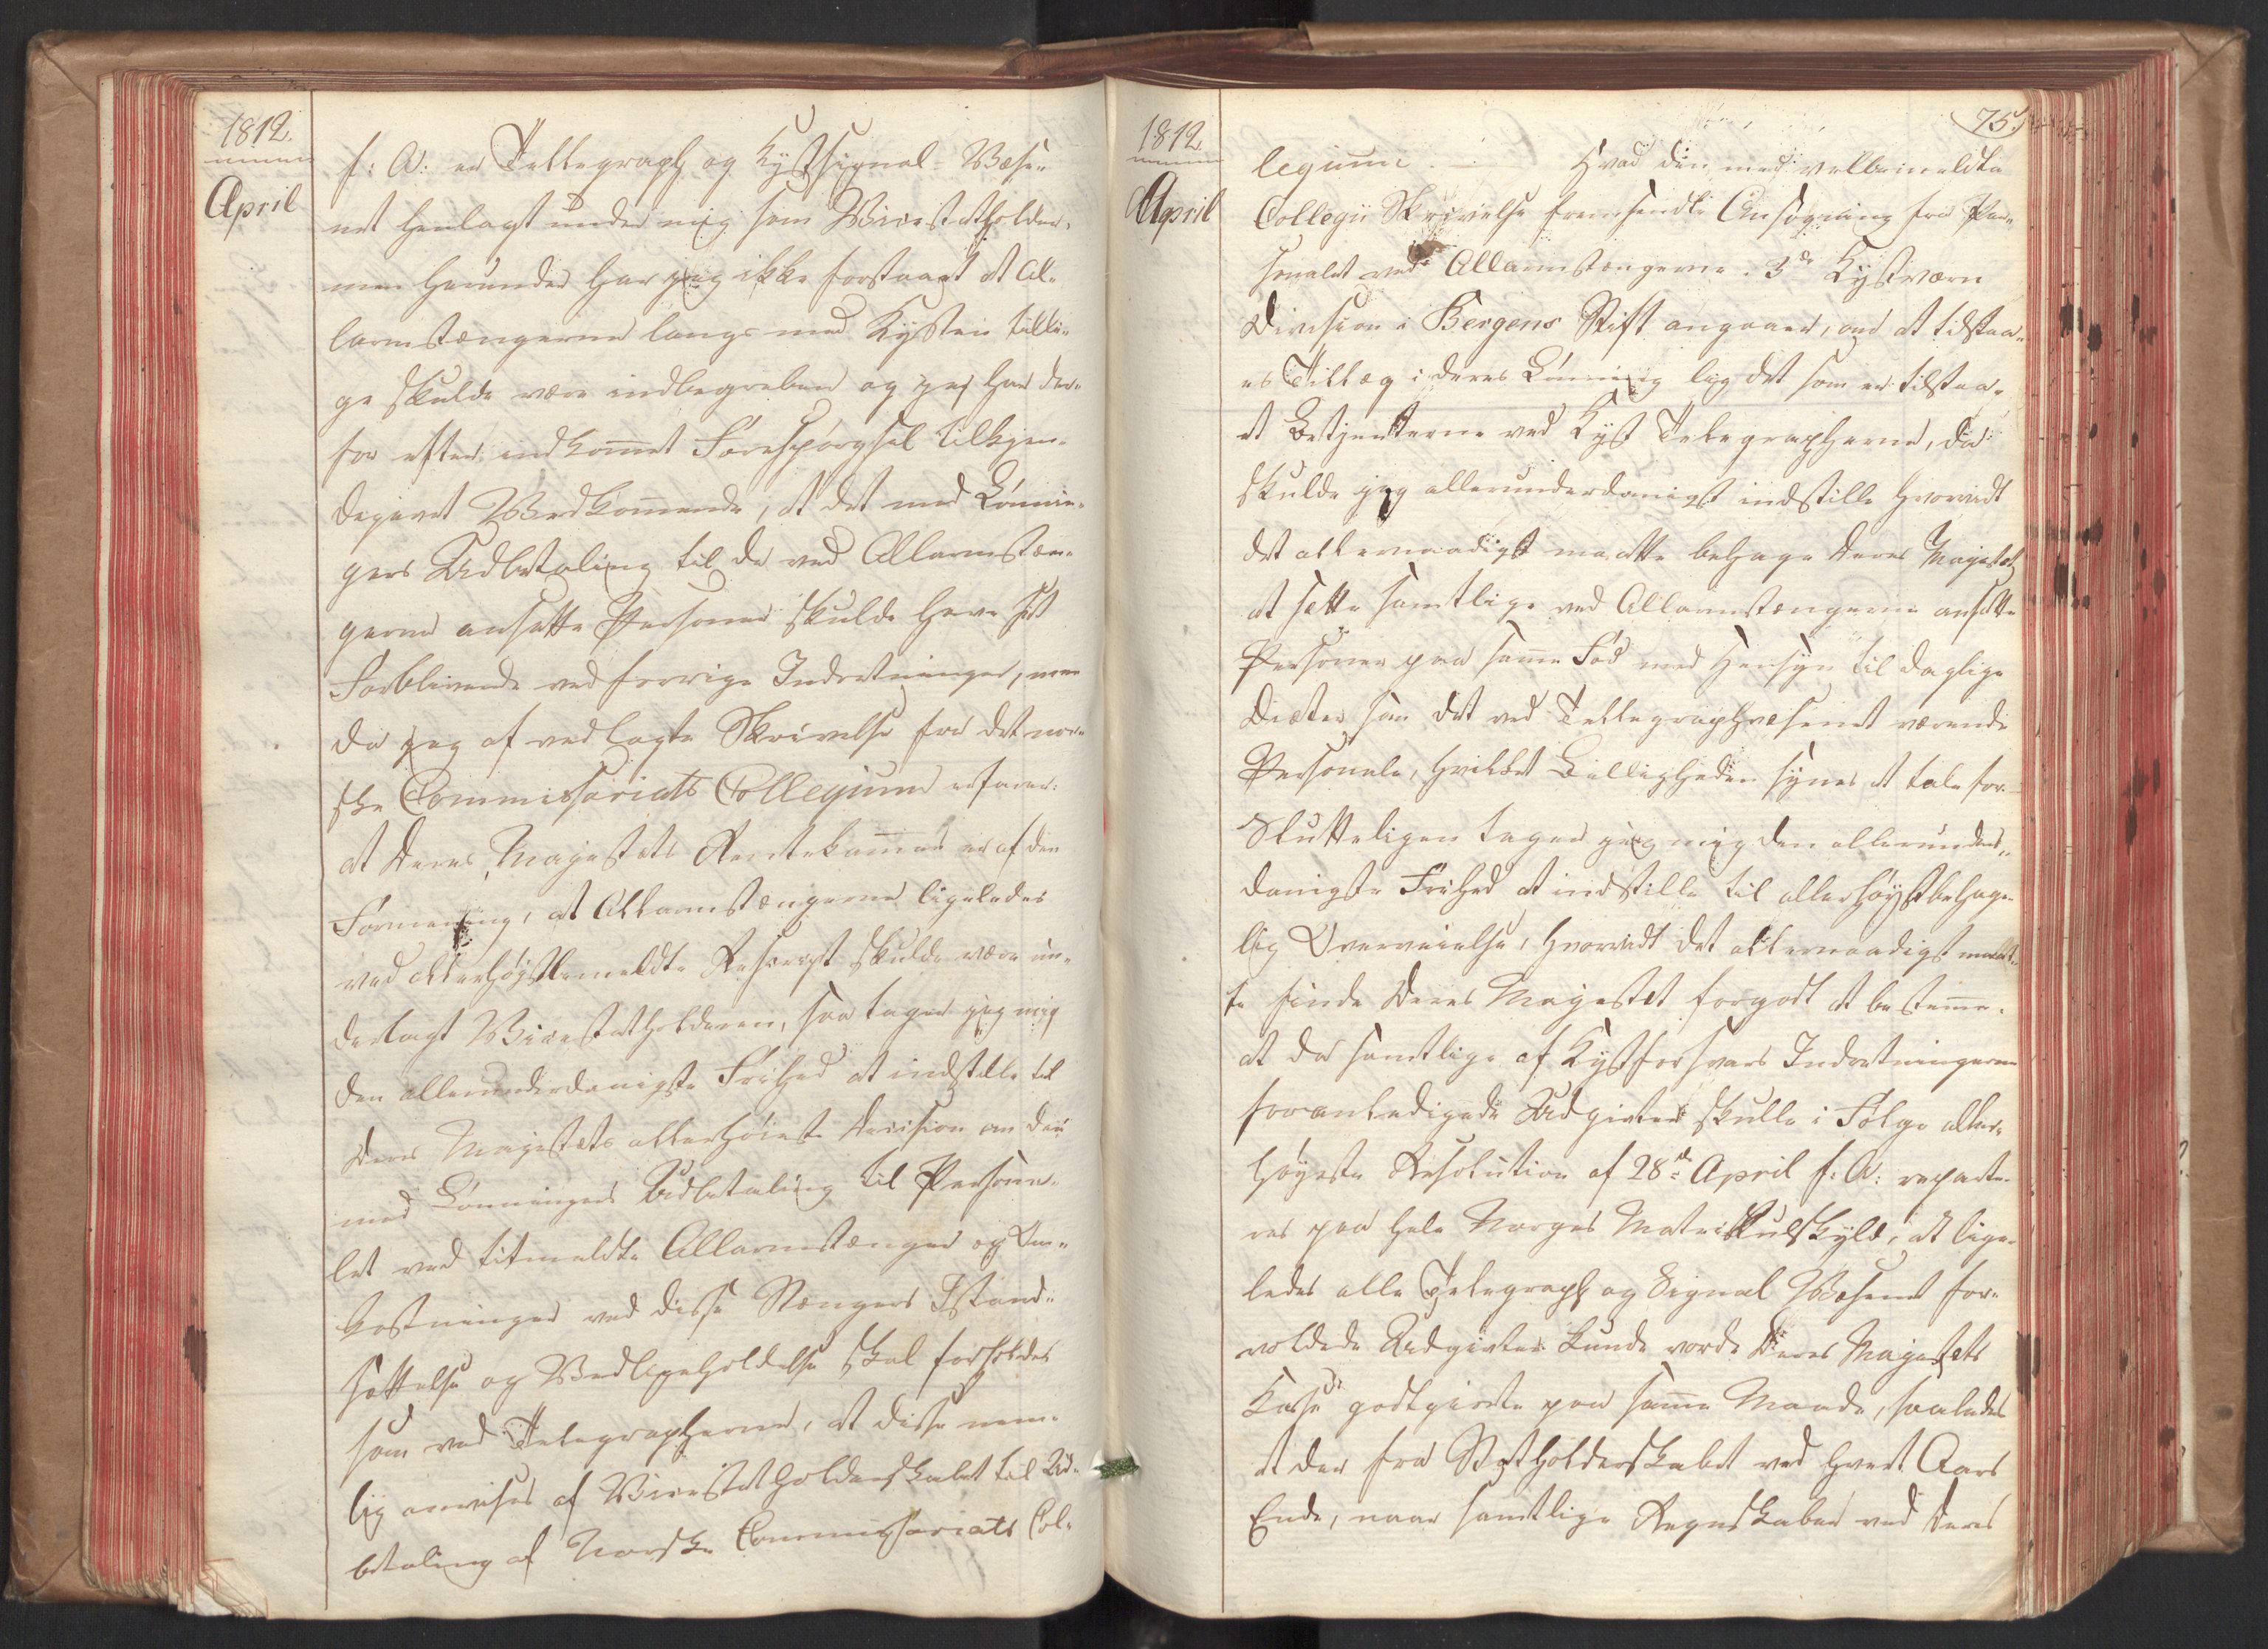 1812.
April
f: A: er Tellegraph og Kystsignal-Væse„
net henlagt under mig som Vicestatholder,
men herunder har jeg ikke forstaaet at Al„
larmstængerne langs med Kysten tilli„
ge skulde være indbegreben og jeg har der„
for efter indkom̄et Forespørgsel tilkjen„
degivet Vedkom̄ende, at det med Lønnin„
gers Udbetaling til de ved Allarmstæn„
gerne ansatte Personer skulde have sit
Forblivende ved forrige Indretninger, men
da jeg af vedlagte Skrivelse fra det nor„
ske Commissariats Collegium erfarer:
at Deres Majestæts Rentekam̄er er af den
Formening, at Allarmstængerne ligeledes
ved allerhøystbemeldte Rescript skulde være un„
derlagt Vicestatholderen, saa tager jeg mig
den allerunderdanigste Friehed at indstille til
Deres Majestæts allerhøieste Decision om det
med Lønningers Udbetaling til Persona„
let ved titmeldte Allarmstænger og Om„
kostninger ved disse Stængers Istand„
sættelse og Vedligeholdelse skal forholdes
som ved Telegrapherne, at disse nem„
lig anvises af Vicestatholderskabet til Ud„
betaling af Norske Commissariats Col„
1812
April
75.
legium. Hvad den med velbemeldte
Collegii Skrivelse fremsendte Ansøgning fra Per„
sonalet ved Allarmstængerne i 3de Kystværn
Division i Bergens Stift angaaer, om at tilstaa„
es Tillæg i deres Lønning lig det som er tilstaa„
et Betjenterne ved Kyst Telegrapherne, da
skulde jeg allerunderdanigst indstille hvorvidt
det allernaadigst maatte behage Deres Majestæt
at sætte samtlige ved Allarmstængerne ansatte
Personer paa sam̄e Fod med Hensyn til daglige
Diæter som det ved Tellegraphvæsenet værende
Personale, hvilket Billigheden synes at tale for.
Slutteligen tager jeg mig den allerunder„
danigste Friehed at indstille til allerhøystbehage„
lig Overveielse, hvorvidt det allernaadigst maat„
te finde Deres Majestæt forgodt at bestem̄e.
at da samtlige af Kystforsvars Indretningerne
foranledigede Udgivter skulle i Følge aller„
høyeste Resolution af 28de April f: A: reparte„
res paa hele Norges Matriskulskyld, at lige„
ledes alle Telegraph og Signal Væsenet for„
voldede Udgivter kunde vorde Deres Majestæts
Kasse godtgiorte paa sam̄e Maade, saaledes
at der fra Statholderskabet ved hvert Aars
Ende, naar samtlige Regnskaber ved Deres